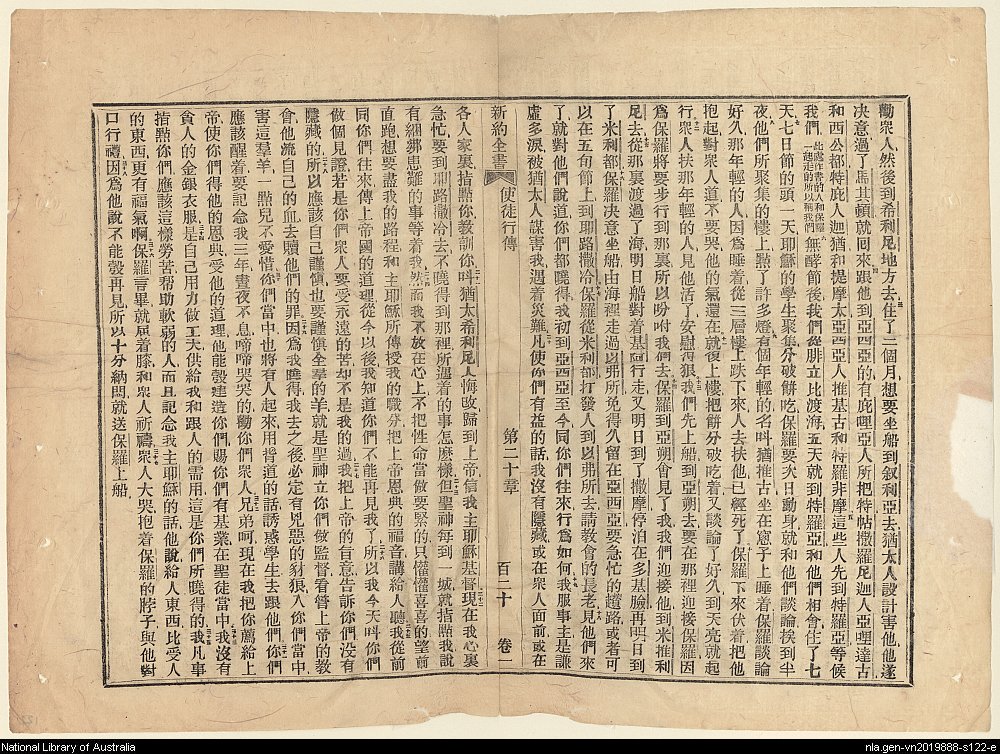 勸眾人然後到希利尼地方去住了三個月想要坐船到叙利亞去猶太人設計害他他遂
决意過了馬其頓就囘來跟他到亞西亞的有庇哩亞人所把特帖撒羅尼迦人亞哩達古
和西公都特庇人迦猶和提摩太亞西亞人推基古和特羅非摩這些人先到特羅亞等候
我們此處作書的人和保羅一起走的所以稱我們無酵節後我們從腓立比渡海五天就到特羅亞和他們相會住了七
天七日節的頭一天耶穌的學生聚集分破餅吃保羅要次日動身就和他們談論挨到半
夜他們所聚集的樓上點了許多燈有個年輕的名叫猶推古坐在窻子上睡着保羅談論
好久那年輕的人因爲睡着從三層樓上跌下來人去扶他已經死了保羅下來伏着把他
抱起對眾人道不要哭他的氣還在就復上樓把餅分破吃着又談論了好久到天亮就起
行眾人扶那年輕的人見他活了安慰得狠我們先上船到亞朔去要在那裡迎接保羅因
爲保羅將要步行到那裏所以吩咐我們去保羅到亞朔會見了我我們迎接他到米推利
尼去從那裏渡過了海明日船對着基阿行走又明日到了撒摩停泊在多基臉再明日到
了米利都保羅决意坐船由海裡走過以弗所免得久留在亞西亞要急忙的趲路或者可
以在五旬節上到耶路撒冷保羅從米利都打發人到以弗所去請教會的長老見他們來
了就對他們說道你們都曉得我初到亞西亞至今同你們往來行爲如何我服事主是謙
虛多淚被猶太人謀害我遇着災難凡使你們有益的話我沒有隱藏或在眾人面前或在
新約全書 使徒行傳 第二十章 百二十 卷一
各人家裏指點你教訓你叫猶太希利尼人悔改歸到上帝信我主耶穌基督現在我心裏
急忙要到耶路撒冷去不曉得到那裡所遇着的事怎麼樣但聖神每到一城就指點我說
有綑綁患難的事等着我然而我不放在心上不把性命當做要緊的只懽懽喜喜的望前
直跑想要盡我的路程和主耶穌所傳授我的職分把上帝恩典的福音講給人聽我從前
同你們往來傳上帝國的道理從今以後我知道你們不能再見我了所以我今天叫你們
做個見證若是你們眾人要受永遠的苦却不是我的過我把上帝的旨意告訴你們沒有
隱藏的所以應該自己謹慎也要謹慎全羣的羊就是聖神立你們做監督看管上帝的教
會他流自己的血去贖他們的罪因爲我曉得我去之後必定有兇惡的豺狼入你們當中
害這羣羊一點兒不愛惜你們當中也將有人起來用背道的話誘惑學生去跟他們你們
應該醒着要記念我三年晝夜不息啼啼哭哭的勸你們眾人兄弟呵現在我把你薦給上
帝使你們得他的恩典受他的道理他能彀建造你們賜你們有基業在聖徒當中我沒有
貪人的金銀衣服是自己用力做工夫供給我和跟人的需用這是你們所曉得的我凡事
指點你們應該這樣勞苦帮助軟弱的人而且記念我主耶穌的話他說給人東西比受人
的東西更有福氣啊保羅言畢就屈着膝和眾人祈禱眾人大哭抱着保羅的脖子與他對
口行禮因爲他說不能彀再見所以十分納悶就送保羅上船
National Library of Australia
nla.gen-vn2019888-s122-e